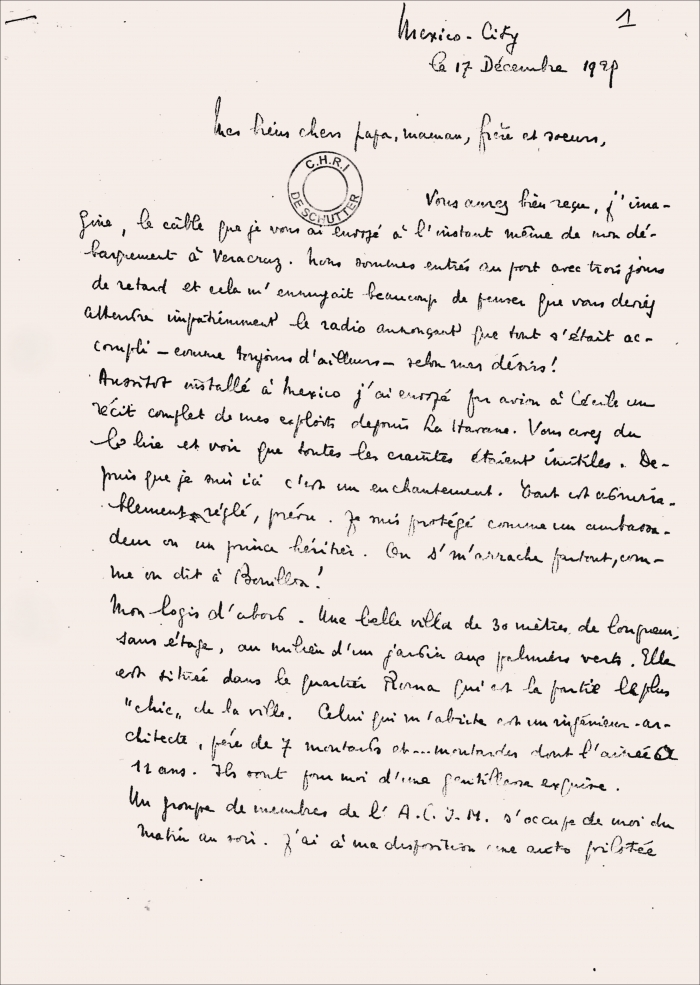 1
Mexico-City
le 17 Décembre 19
Mes biens chers papa, maman, frère et soeurs,
C.H.R.I
DE SCHUTTER
Vous aurez bien reçu, j'ima-
gine, le câble que je vous ai envoyé à l'instant même de mon dé-
barquement à Veracruz. Nous sommes entrés au port avec trois jours
de retard et cela m'ennuyait beaucoup de penser que vous deviez
attendre impatiemment le radio annonçant que tout s'était ac-
compli - comme toujours d'ailleurs - selon mes désirs!
Aussitôt installé à Mexico j'ai envoyé par avion à Cécile un
récit complet de mes exploits depuis La Havane. Vous avez du
le lire et voir que toutes les craintes étaient inutiles. De-
puis que je suis ici c'est un enchantement. Tout est admira-
blement réglé, prévu. Je suis protégé comme un ambassa-
deur ou un prince héritier. On s'm'arrache partout, com-
me on dit à Bouillon!
Mon logis d'abord. Une belle villa de 30 mètres de longueur,
sans étage, au milieu d'un jardin aux palmiers verts. Elle
est située dans le quartier Roma qui est la partie la plus
"chic" de la ville. Celui qui m'abrite est un ingénieur-ar-
chitecte, père de 7 moutards et...moutardes dont l'aînée a
11 ans. Ils sont pour moi d'une gentillesse exquise.
Un groupe de membres de l'A.C.J.M. s'occupe de moi du
matin au soir. J'ai à ma disposition une auto pilotée